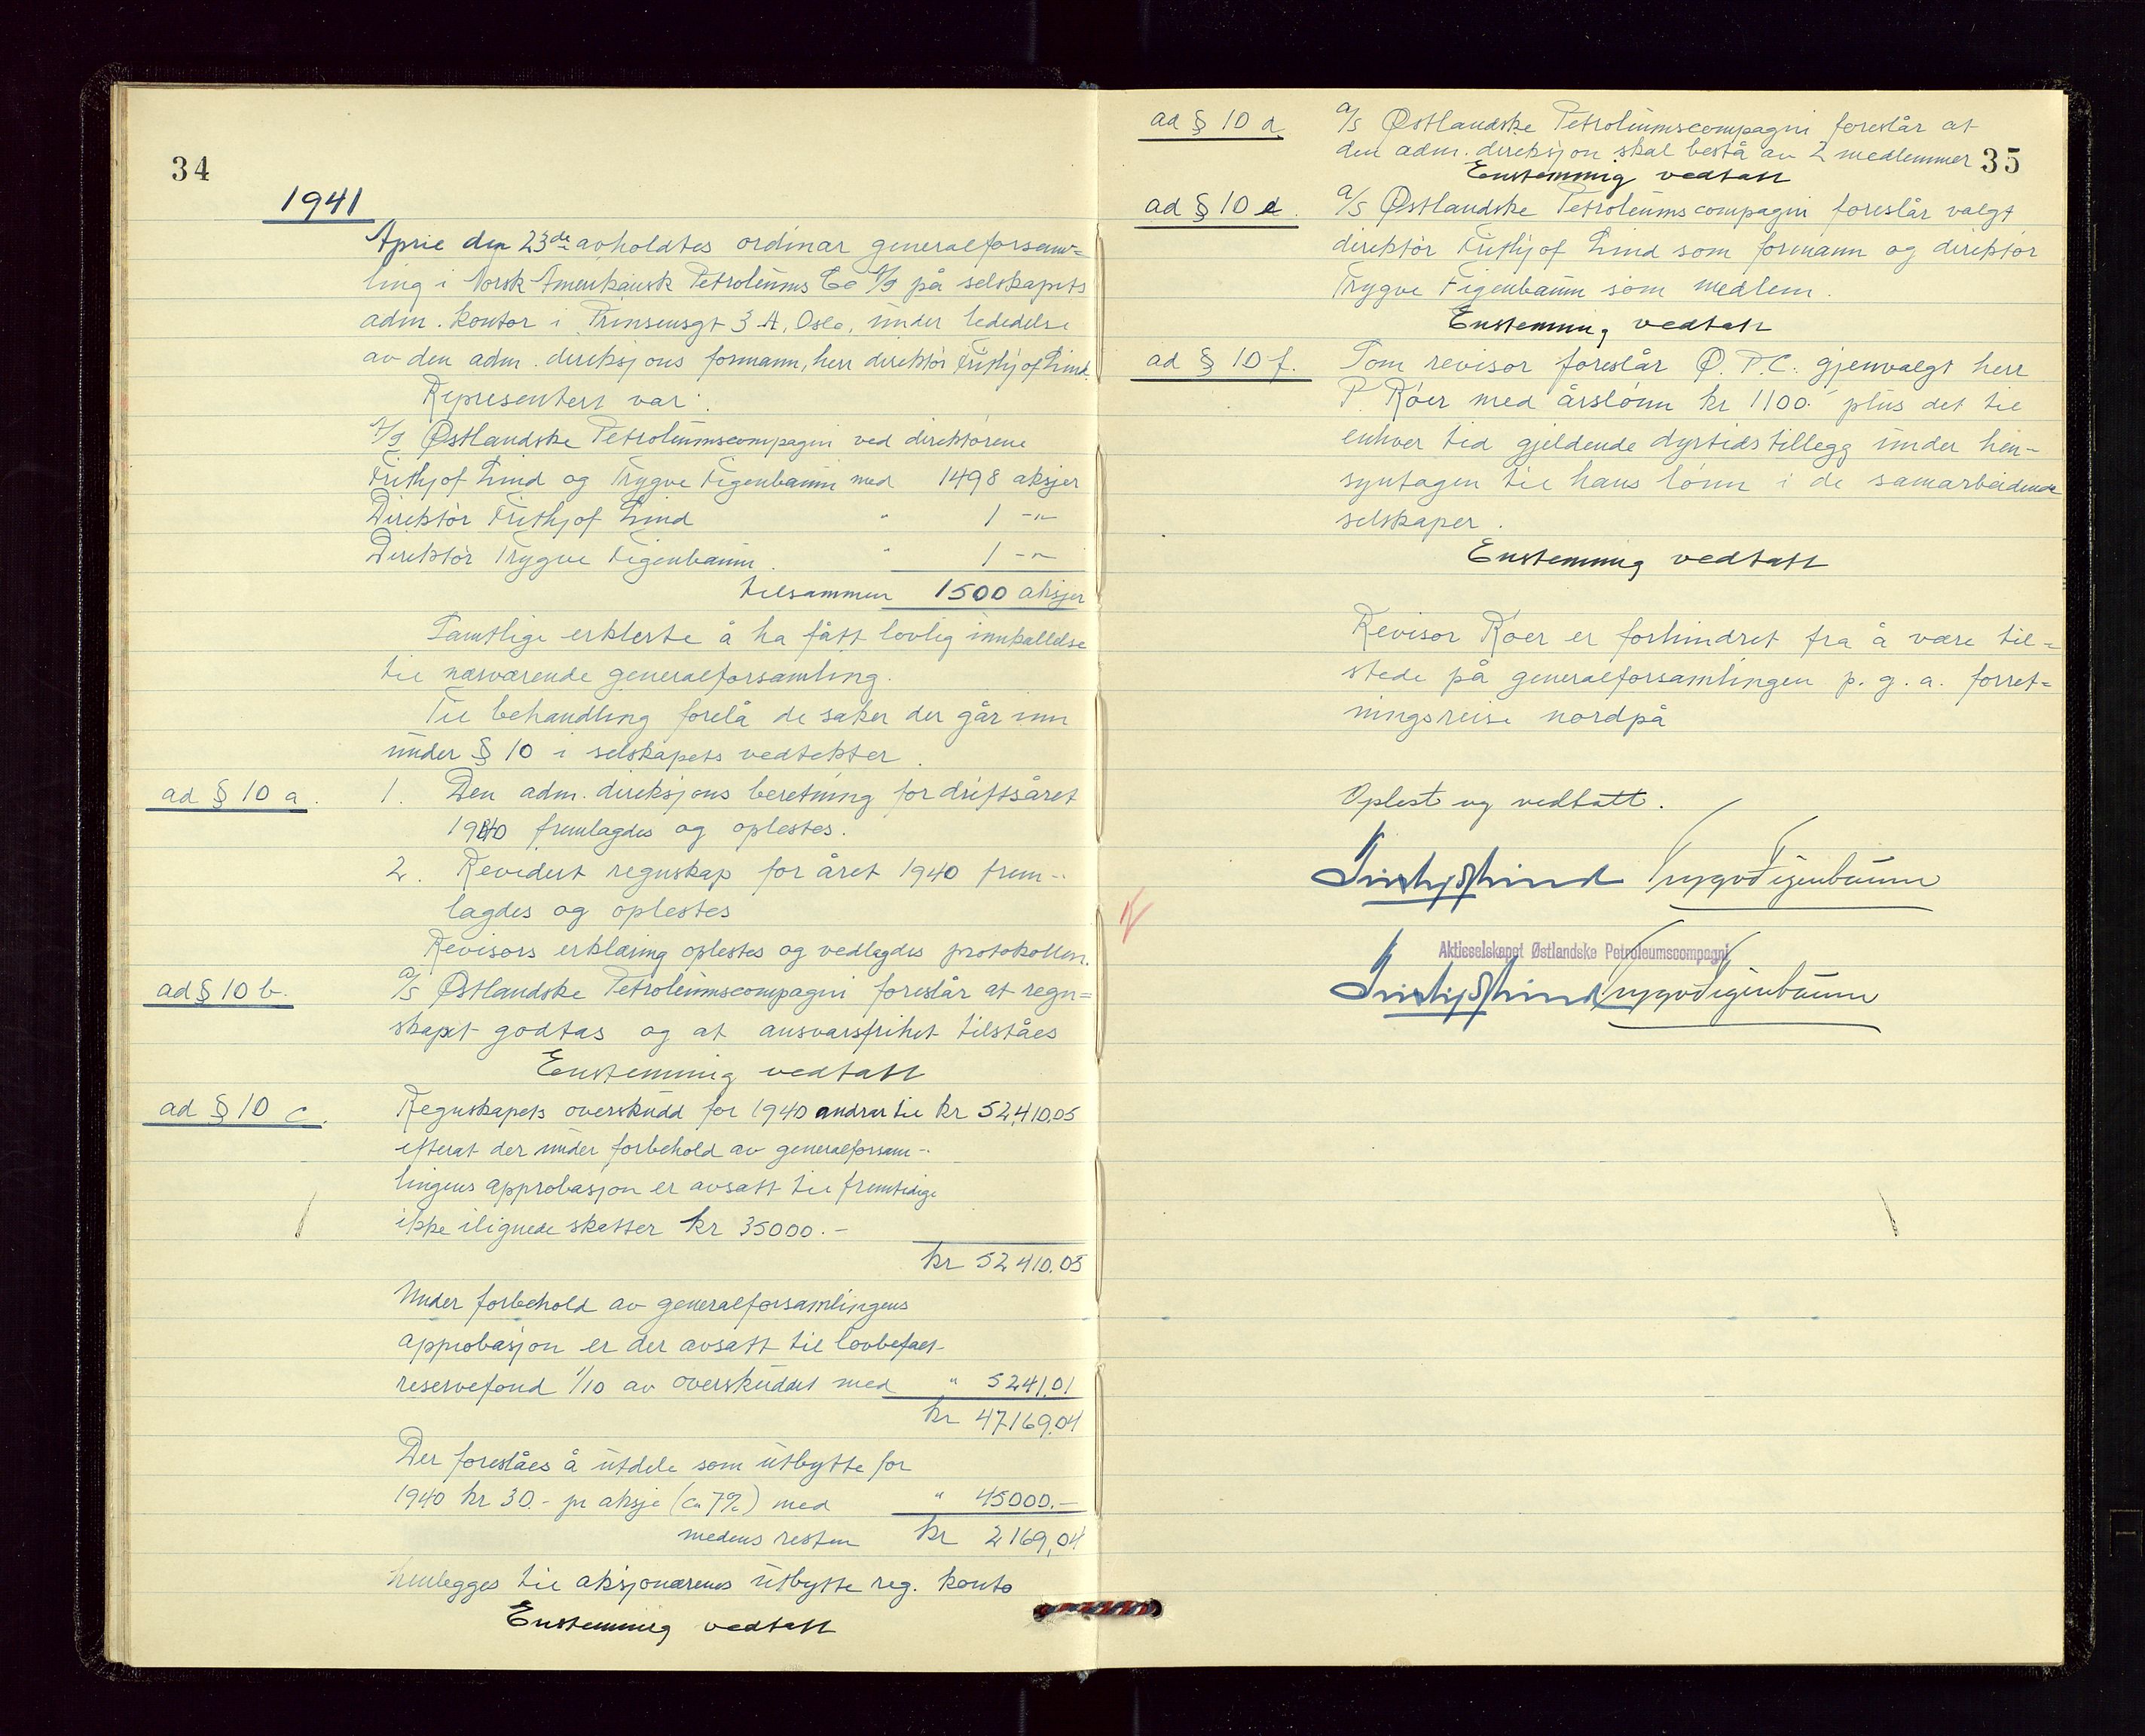 34
1941
April den 23de avholdtes ordinær generalforsam=
ling i Norsk Amerikansk Petroleums Co A/S på selskapets
adm. kontor i Prinsensgt 3 A, Oslo, under lededelse
av den adm. direksjons formann, herr direktör Frithjof Lind.
Representert var:
A/S Østlandske Petroleumscompagni ved direktörene
Frithjof Lind og Trygve Figenbaum med 1498 aksjer
Direktör Frithjof Lind " 1 -"-
Direktör Trygve Figenbaum. " 1 -"-
tilsammen 1500 aksjer
Samtlige erklerte å ha fått lovlig innkallelse
til næsværende generalforsamling.
Til behandling forelå de saker der går inn
under § 10 i selskapets vedtekter.
ad § 10 a. 1. Den adm. direksjons beretning for driftsåret
1940 fremlagdes og oplestes.
2. Revidert regnskap for året 1940 frem-
lagdes og oplestes
Revisors erklæring oplestes og vedlagdes protokollen.
ad § 10 b. a/s Østlandske Petroleumscompagni foreslår at regn=
skapet godtas og at ansvarsfrihet tilståes
Enstemmig vedtatt
ad § 10 c. Regnskapets overskudd for 1940 andrar til kr 52,410,05
efterat der under forbehold av generalforsam-
lingens approbasjon er avsatt til fremtidige
ikke ilignede skatter kr 35000.-
kr 52410.05
Under forbehold av generalforsamlingens
approbasjon er der avsatt til lovbefalt
reservefond 1/10 av overskuddet med " 5241,01
kr 47169.04
Der foreslåes å utdele som utbytte for
1940 kr 30.- pr aksje (ca 7%) med " 45000.-
medens resten kr 2169,04
henlegges til aksjonærenes utbytte reg. konto
Enstemmig vedtatt
35
ad § 10 d a/s Østlandske Petroleumscompagni foreslår at
den adm. direksjon skal bestå av 2 medlemmer
Enstemmig vedtatt
ad § 10 e. a/s Østlandske Petroleumscompagni foreslår valgt
direktör Frithjof Lind som formann og direktör
Trygve Figenbaum som medlem.
Enstemmig vedtatt
ad § 10 f. Som revisor foreslår Ø.P.C. gjenvalgt herr
P. Röer med årslönn kr 1100.- plus det til
enhver tid gjeldende dyrtidstillegg under hen-
syntagen til hans lönn i de samarbeidende
selskaper.
Enstemmig vedtatt
Revisor Röer er forhindret fra å være til=
stede på generalforsamlingen p.g.a. forret=
ningsreise nordpå
Oplest og vedtatt.
Frithjof Lind Trygve Figenbaum
Aktieselskapet Østlandske Petroleumscompagni
Frithjof Lind Trygve Figenbaum